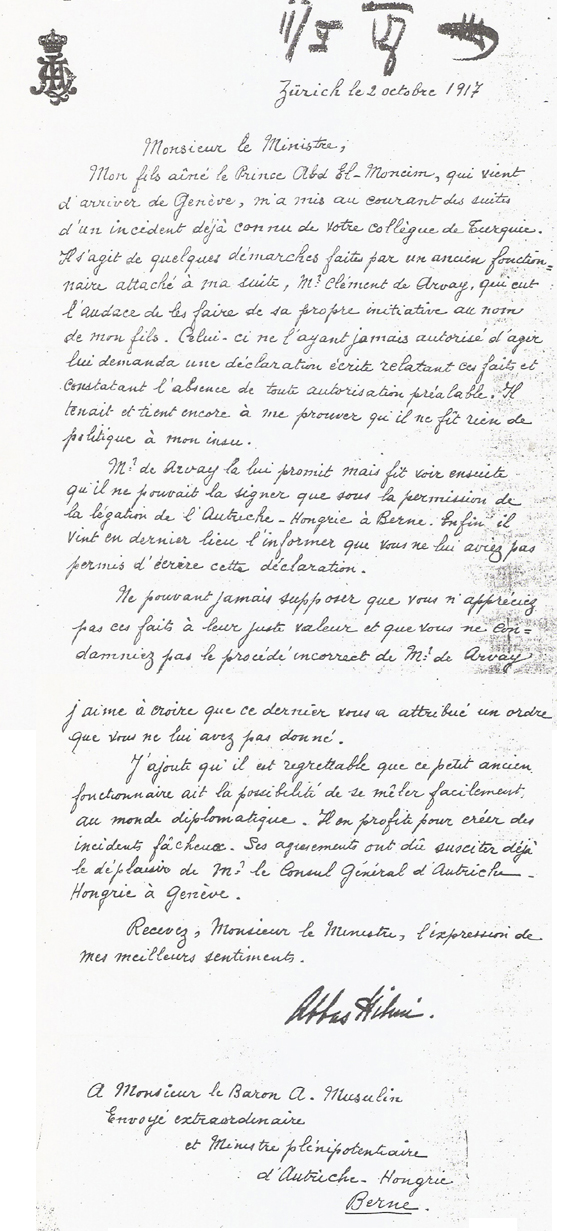 Zürich le 2 octobre 1917
Monsieur le Ministre,
Mon fils aîné le Prince Abd El-Moneim, qui vient
d'arriver de Genève, m'a mis au courant des suites
d'un incident déjà connu de votre collègue de Turquie.
Il s'agit de quelques démarches faites par un ancien fonction=
naire attaché à ma suite, Mr Clément de Arvay, qui eut
l'audace de les faire de sa propre initiative au nom
de mon fils. Celui-ci ne l'ayant jamais autorisé d'agir
lui demanda une déclaration écrite relatant ces faits et
constatant l'absence de toute autorisation préalable. Il
tenait et tient encore à me prouver qu'il ne fit rien de
politique à mon insu.
Mr de Arvay la lui promit mais fit voir ensuite
qu'il ne pouvait la signer que sous la permission de
la légation de l'Autriche-Hongrie à Berne. Enfin il
vint en dernier lieu l'informer que vous ne lui aviez pas
permis d'écrire cette déclaration.
Ne pouvant jamais supposer que vous n'appréciez
pas ces faits à leur juste valeur et que vous ne con=
damniez pas le procédé incorrect de Mr de Arvay
j'aime à croire que ce dernier vous a attribué un ordre
que vous ne lui avez pas donné.
J'ajoute qu'il est regrettable que ce petit ancien
fonctionnaire ait la possibilité de se mêler facilement
au monde diplomatique. Il en profite pour créer des
incidents fâcheux. Ses agissements ont dû susciter déjà
le déplaisir de Mr le Consul Général d'Autriche-
Hongrie à Genève.
Recevez, Monsieur le Ministre, l'expression de
mes meilleurs sentiments.
Abbas Hilmi.
A Monsieur le Baron A. Musulin
Envoyé extraordinaire
et Ministre plénipotentiaire
d'Autriche-Hongrie
Berne.